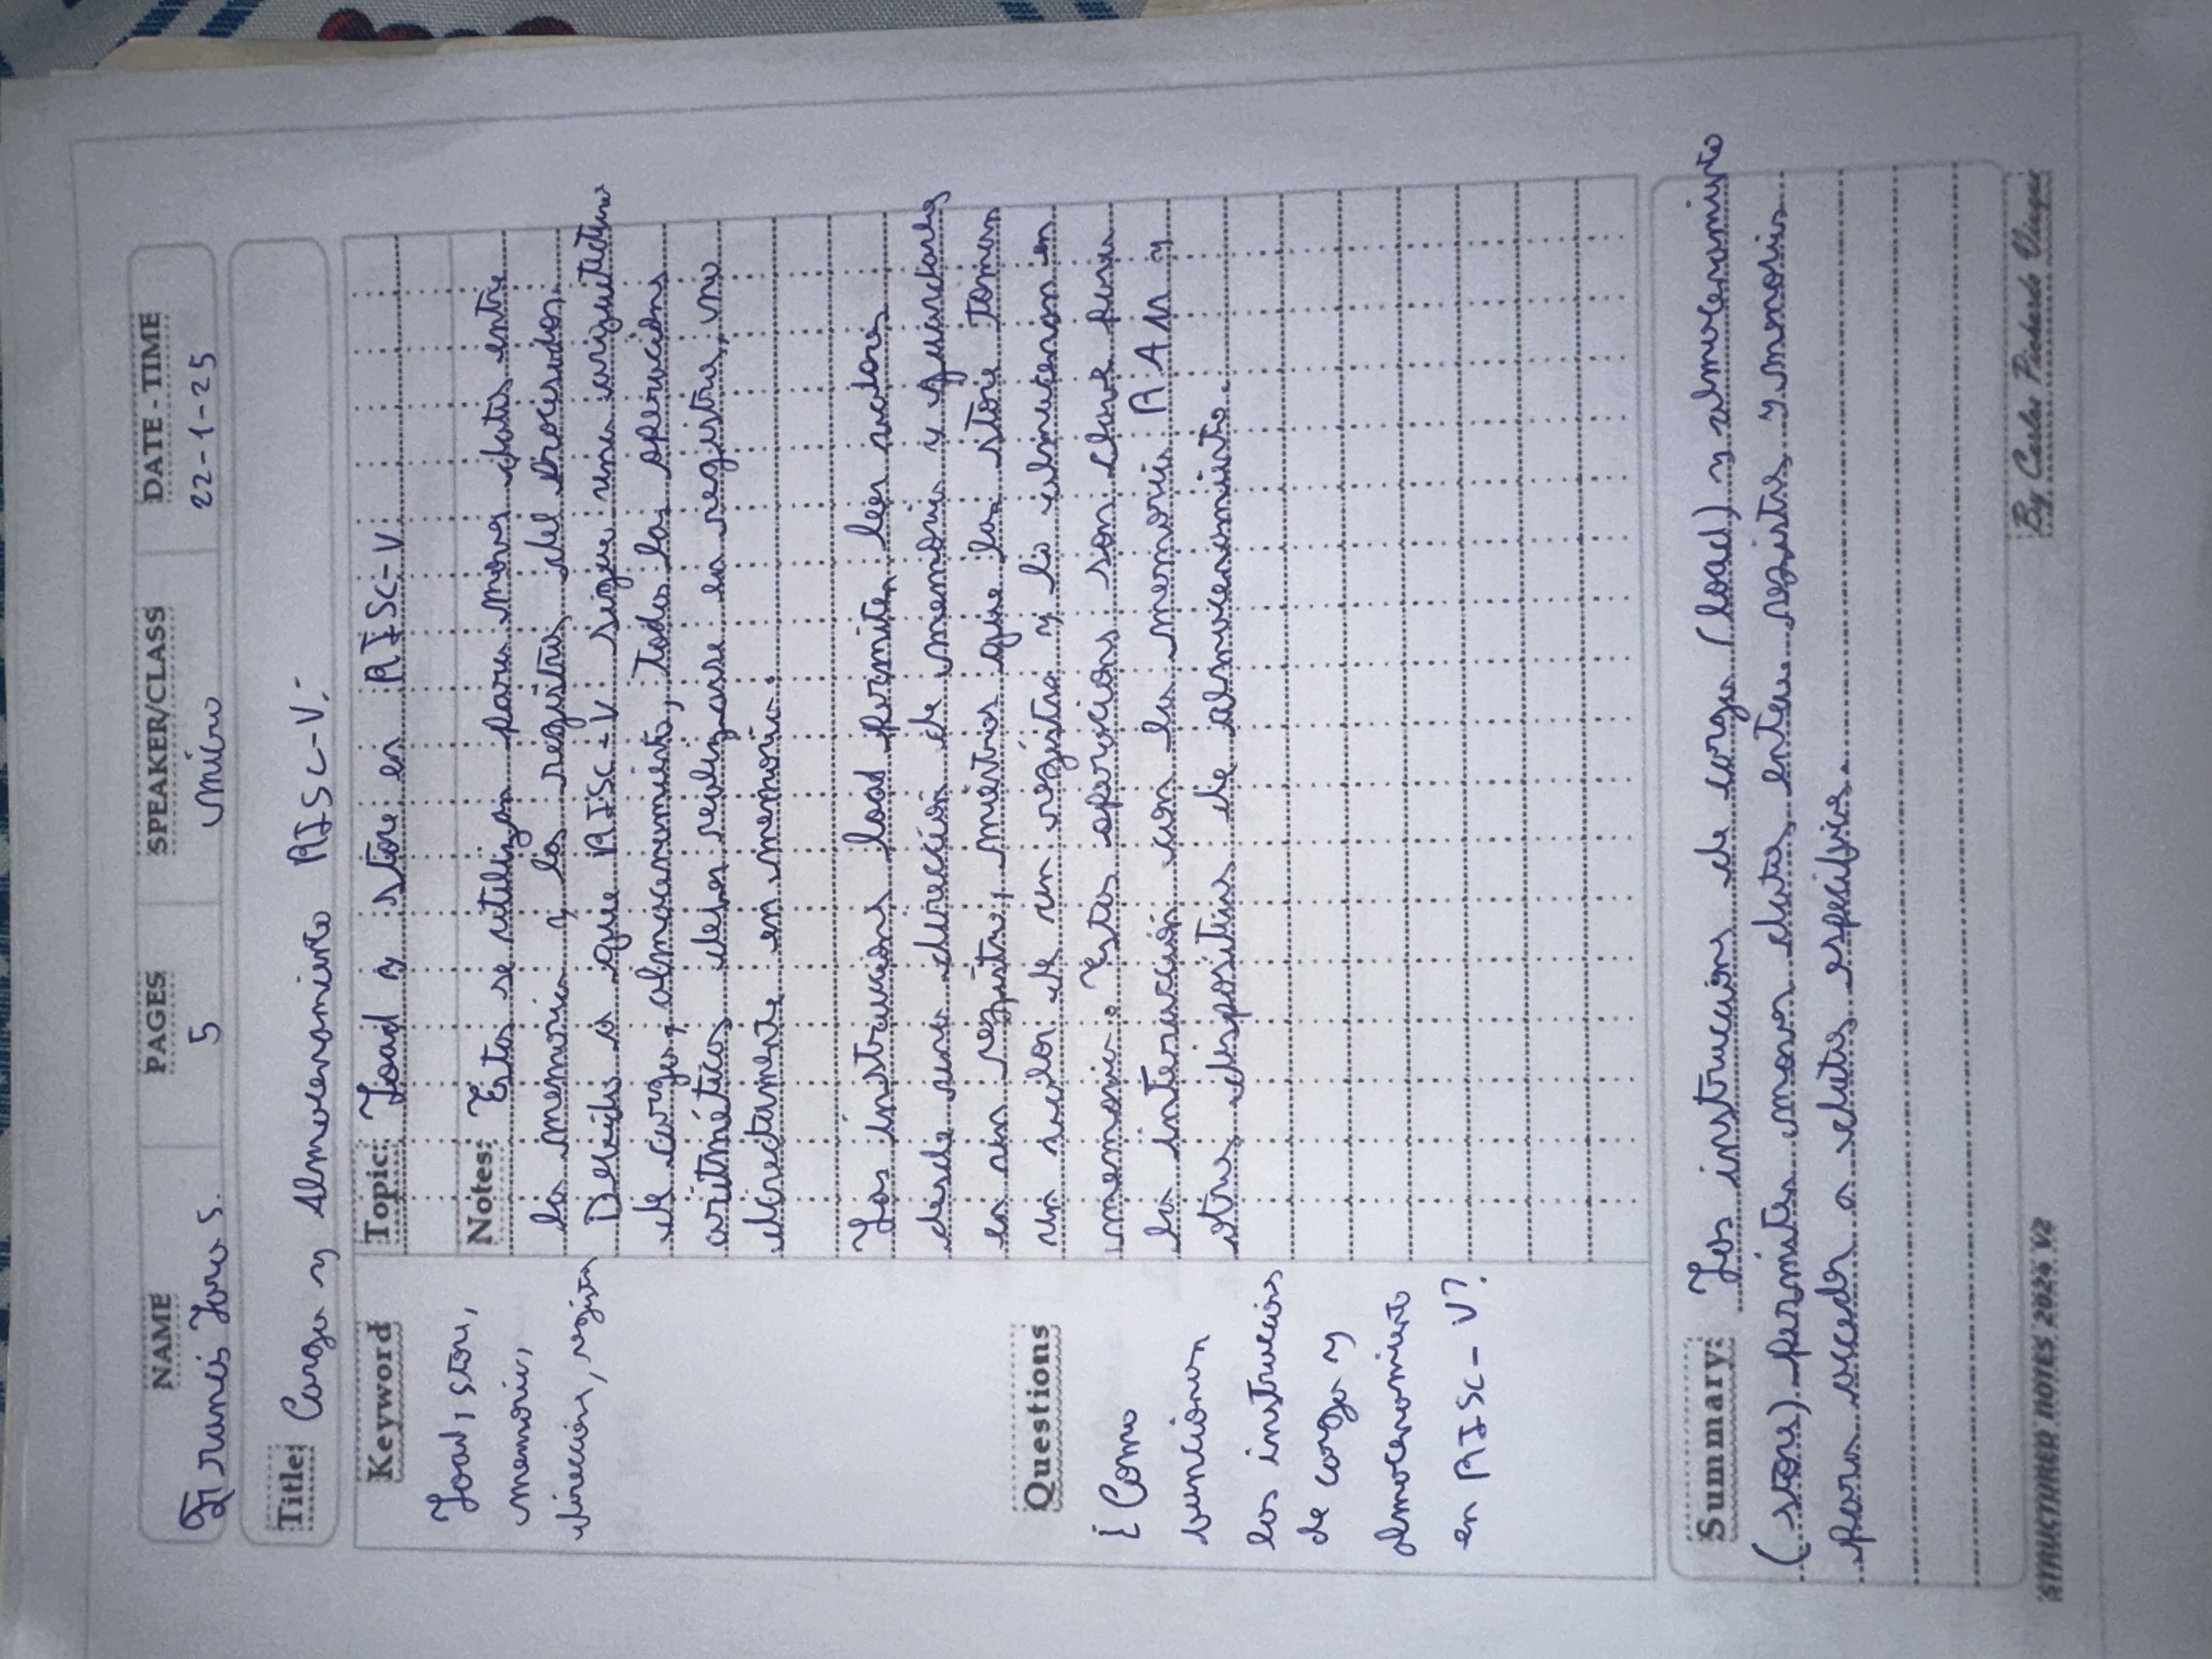 NAME PAGES SPEAKER/CLASS DATE - TIME
Francis Jara S. 5 micro 22-1-25
Title: Carga y Almacenamiento RISC-V.
Keyword
Load, store,
memoria,
direccions, registro
Topic: Load y store en RISC-V
Notes: Estas se utilizan para mover datos entre
la memoria y los registros del procesador.
Debido a que RISC-V sigue una arquitectura
de carga, almacenamiento, todas las operacions
aritméticas deben realizarse en registros, no
directamente en memoria.
Las instruccions load permiten leer valores
desde una dirección de memoria y guardarlos
en un registro, mientras que las store toman
un valor de un registro y lo almacenan en
memoria. Estas operacions son clave para
la interacción con la memoria RAM y
otros dispositivos de almacenamiento.
Questions
¿Como
funcionan
las instruccions
de carga y
almacenamiento
en RISC-V?
Summary: Las instruccions de carga (load) y almacenamiento
(store) permiten mover datos entre registros y memoria
para acceder a datos especificos.
STRUCTURED NOTES 2024 V2
By Carlos Pichardo Viuque